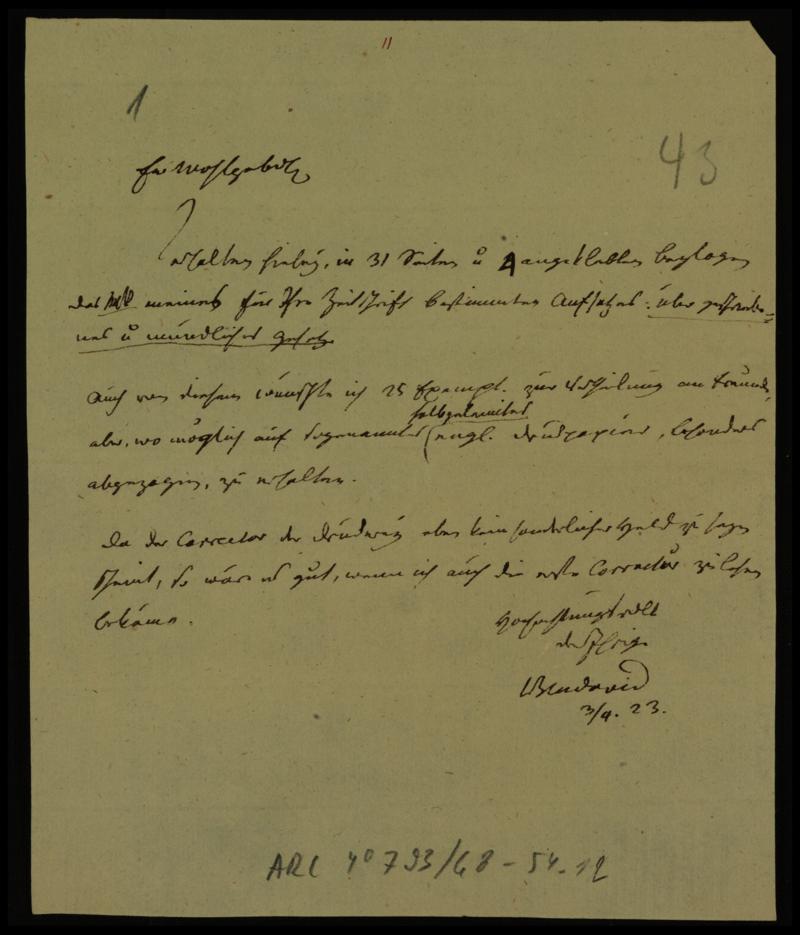 11
1
43
Ew Wohlgeboh
erhalten hiebey, in 31 Seiten u 4 angeklebten Beylagen
das Mst meines für Ihre Zeitschrift bestimmten Aufsatzes: über geschriebe-
nes u mündliches Gesetz.
Auch von diesem wünschte ich 25 Exempl. zur Vertheilung an Freunde,
aber, wo möglich auf sogenanntes halbgeleimtes engl. Druckpapier, besonders
abgezogen, zu erhalten.
Da der Corrector der Druckerey eben kein sonderlicher Held zu seyn
scheint, so wäre es gut, wenn ich auch die erste Correctur zu lesen
bekäme.
Hochachtungsvoll
der Ihrige
LBendavid
3/4. 23.
ARC 4° 793/68-54.12